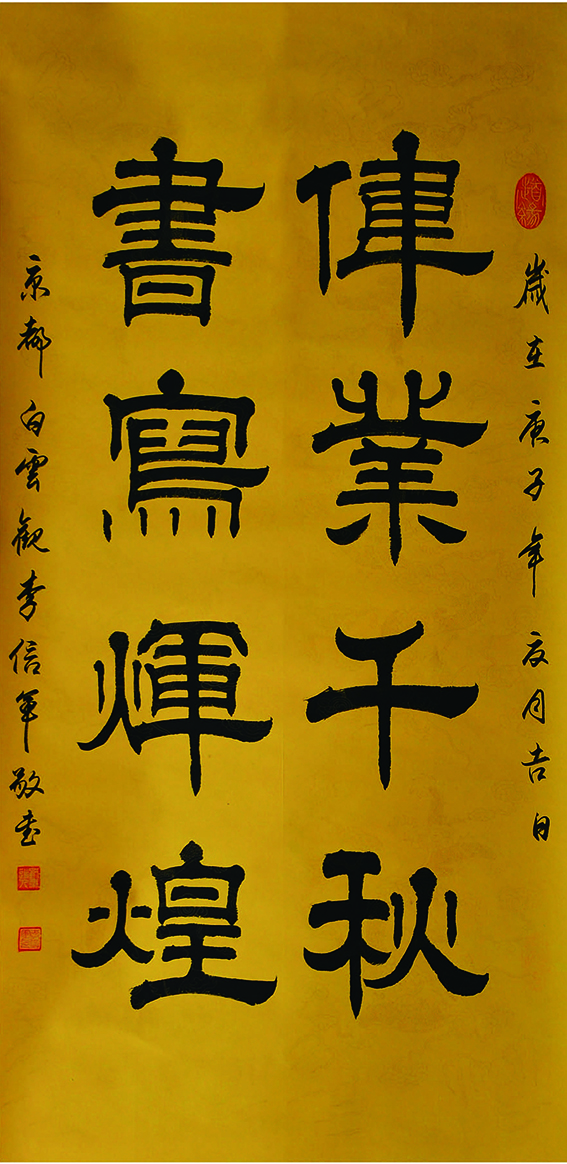 歲在庚子年夏月吉日
偉業千秋
書寫煇煌
京都白雲觀李信軍敬書